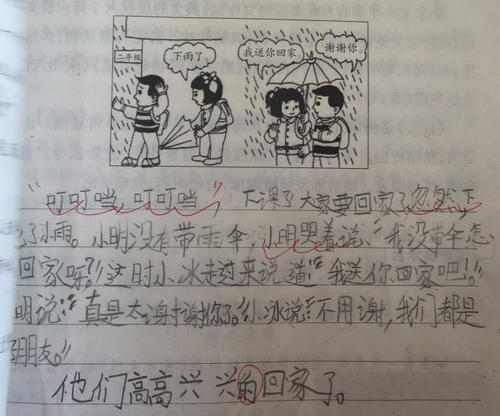 二年级
下雨了。
我送你回家。
谢谢你。
“叮叮当,叮叮当”,下课了大家要回家了忽然,下
了小雨。小明没有带雨伞,小明哭着说:“我没带伞怎
回家呀?”这时小冰走过来说道:“我送你回家吧!”
明说:“真是太谢谢你了。”小冰说:“不用谢,我们都是
朋友。”
他们高高兴兴的回家了。